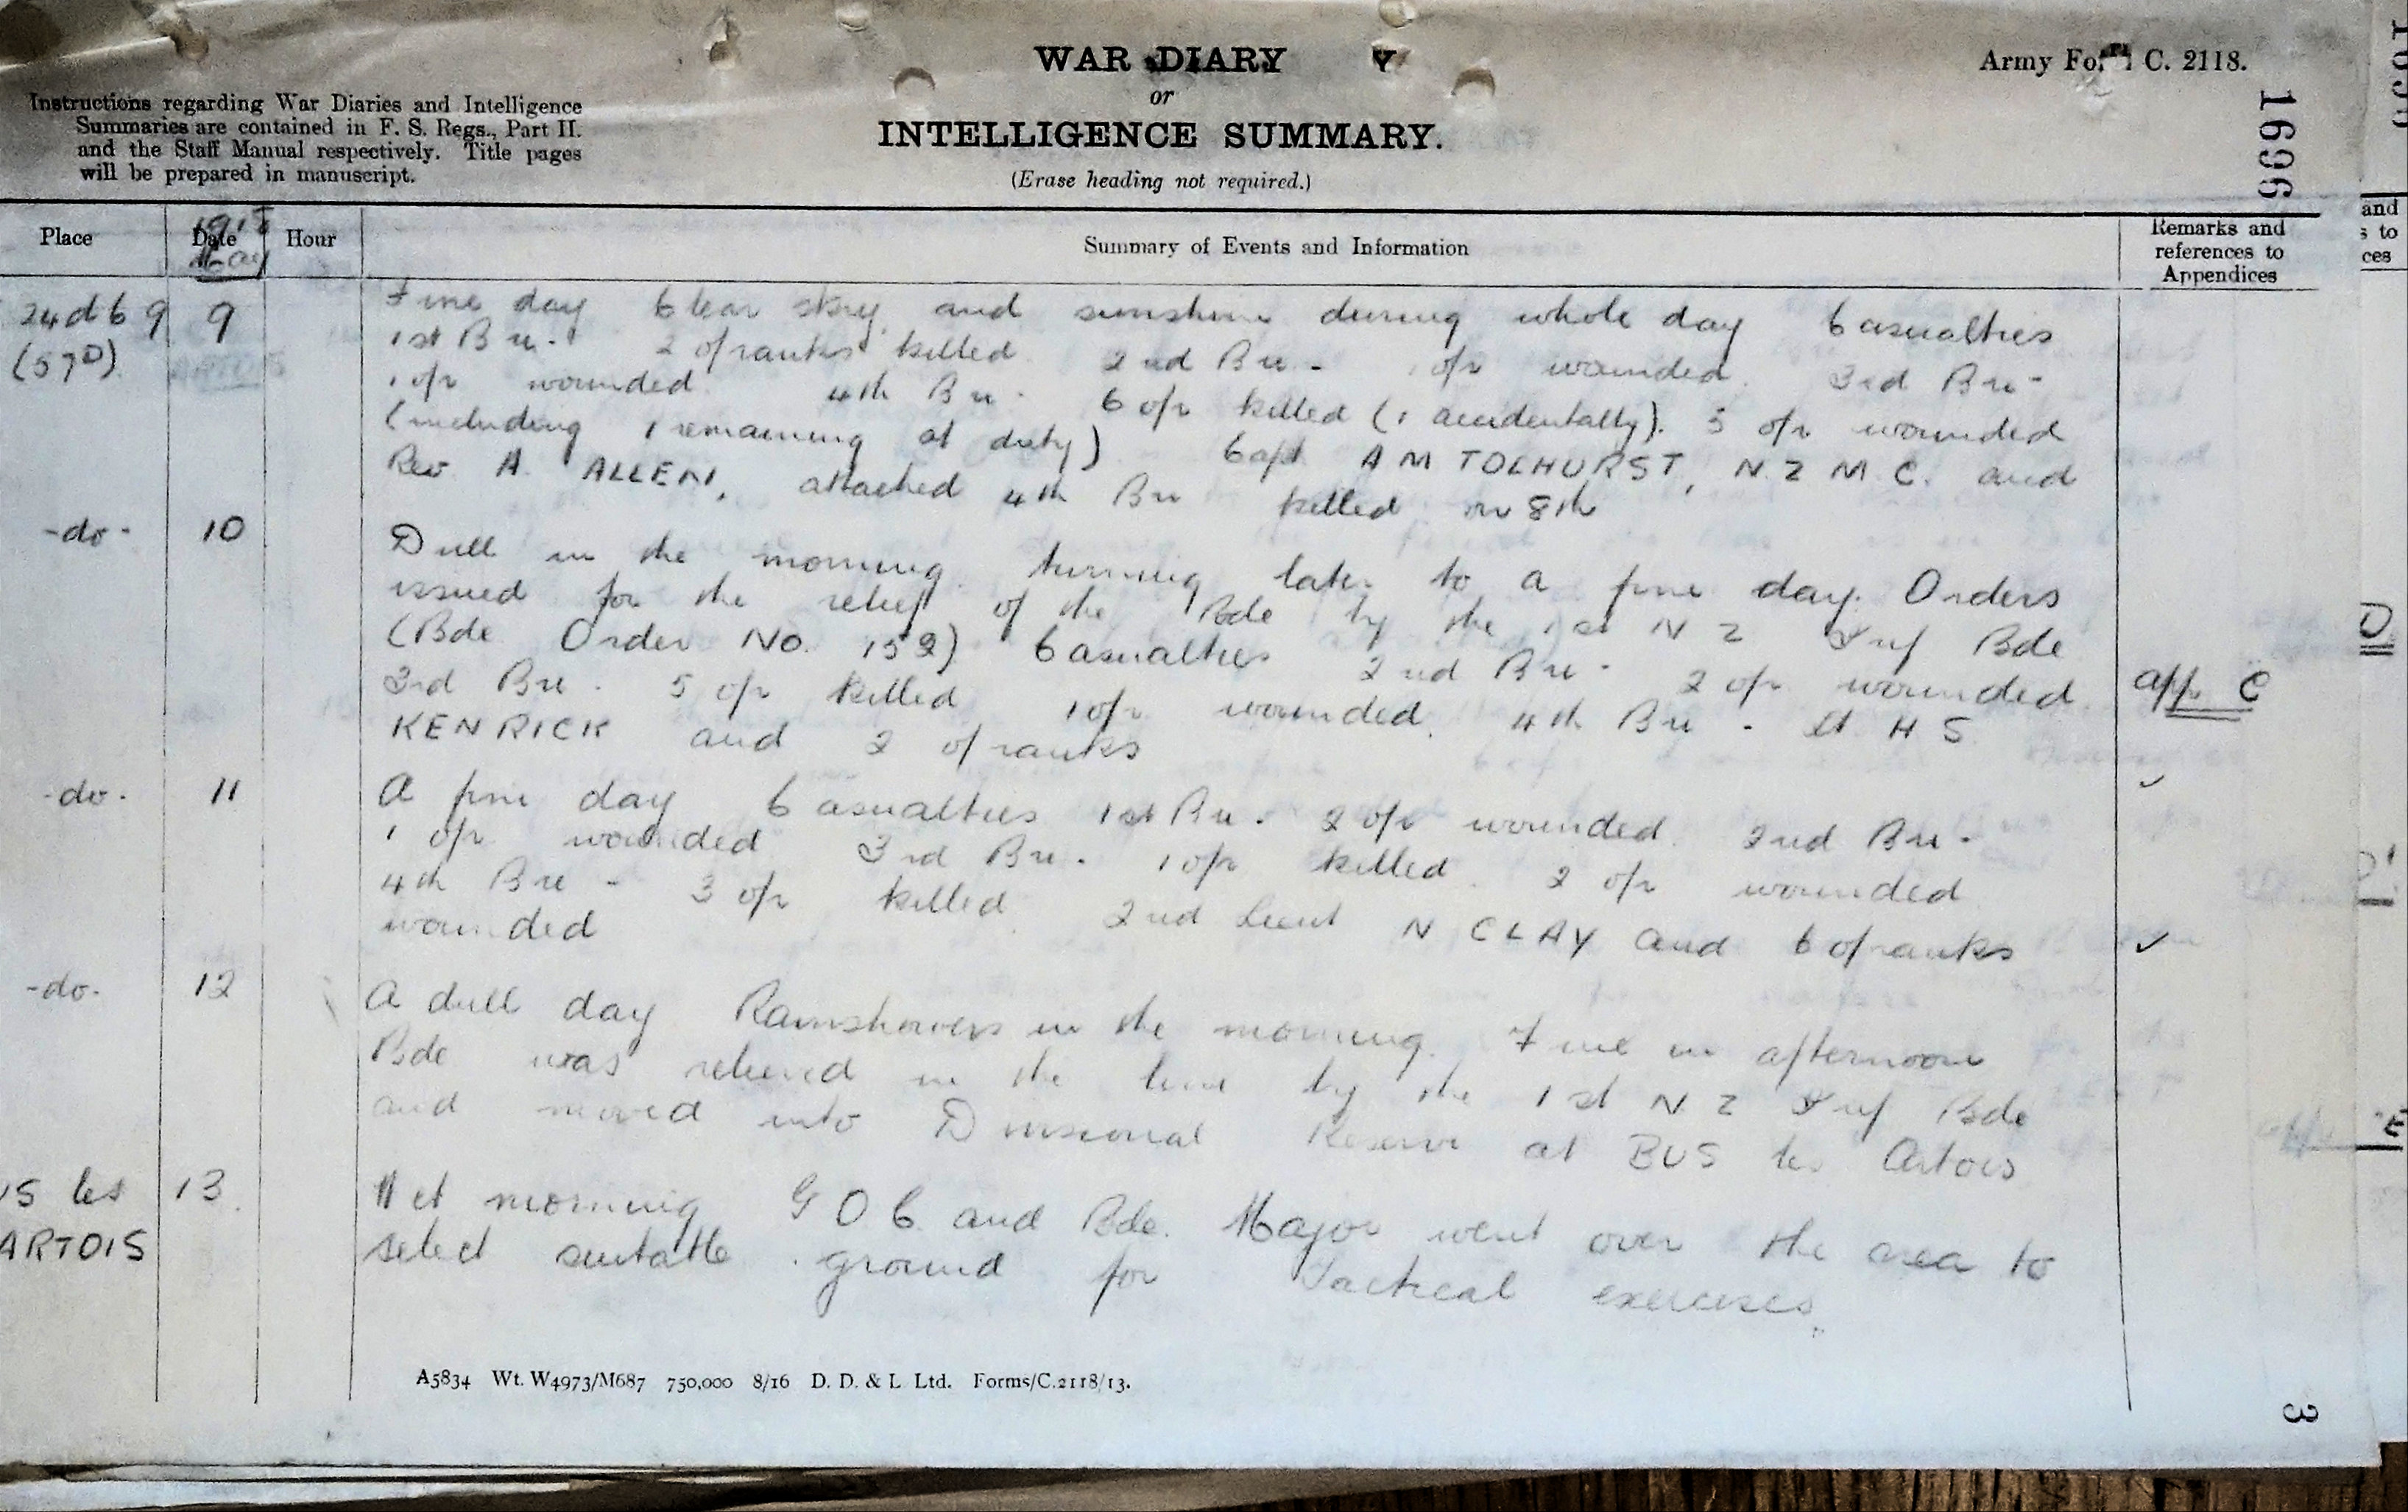 WAR DIARY
or
INTELLIGENCE SUMMARY.
(Erase heading not required.)
Army Form C. 2118.
1696
Instructions regarding War Diaries and Intelligence
Summaries are contained in F. S. Regs., Part II.
and the Staff Manual respectively. Title pages
will be prepared in manuscript.
Place
Date
1918
May
Hour
Summary of Events and Information
Remarks and
references to
Appendices
24d 6 9
(57D)
9
Fine day Clear sky and sunshine during whole day Casualties
1st Bn. 2 o/ranks killed. 2nd Bn - 1 o/r wounded. 3rd Bn -
1 o/r wounded 4th Bn - 6 o/r killed (1 accidentally). 5 o/r wounded
(including 1 remaining at duty) Capt A M TOLHURST, N.Z M.C. and
Rev A. ALLEN, attached 4th Bn killed on 8th
-do-
10
Dull in the morning turning later to a fine day. Orders
issued for the relief of the Bde by the 1st N Z Inf Bde
(Bde Order No. 152) Casualties 2nd Bn - 2 o/r wounded
3rd Bn - 5 o/r killed 1 o/r wounded. 4th Bn - Lt H S
KENRICK and 2 o/ranks
app. C
-do-
11
A fine day Casualties 1st Bn - 2 o/r wounded. 2nd Bn -
1 o/r wounded 3rd Bn - 1 o/r killed. 2 o/r wounded
4th Bn - 3 o/r killed. 2nd Lieut N CLAY and 6 o/ranks
wounded
-do-
12
A dull day Rainshowers in the morning. Fine in afternoon
Bde was relieved in the line by the 1st N. Z Inf Bde
and moved into Divisional Reserve at BUS les Artois
US les
ARTOIS
13.
Wet morning G O C. and Bde. Major went over the area to
select suitable ground for Tactical exercises.
A5834 Wt. W4973/M687 750,000 8/16 D. D. & L Ltd. Forms/C.2118/13.
3
and
s to
ces
D
E